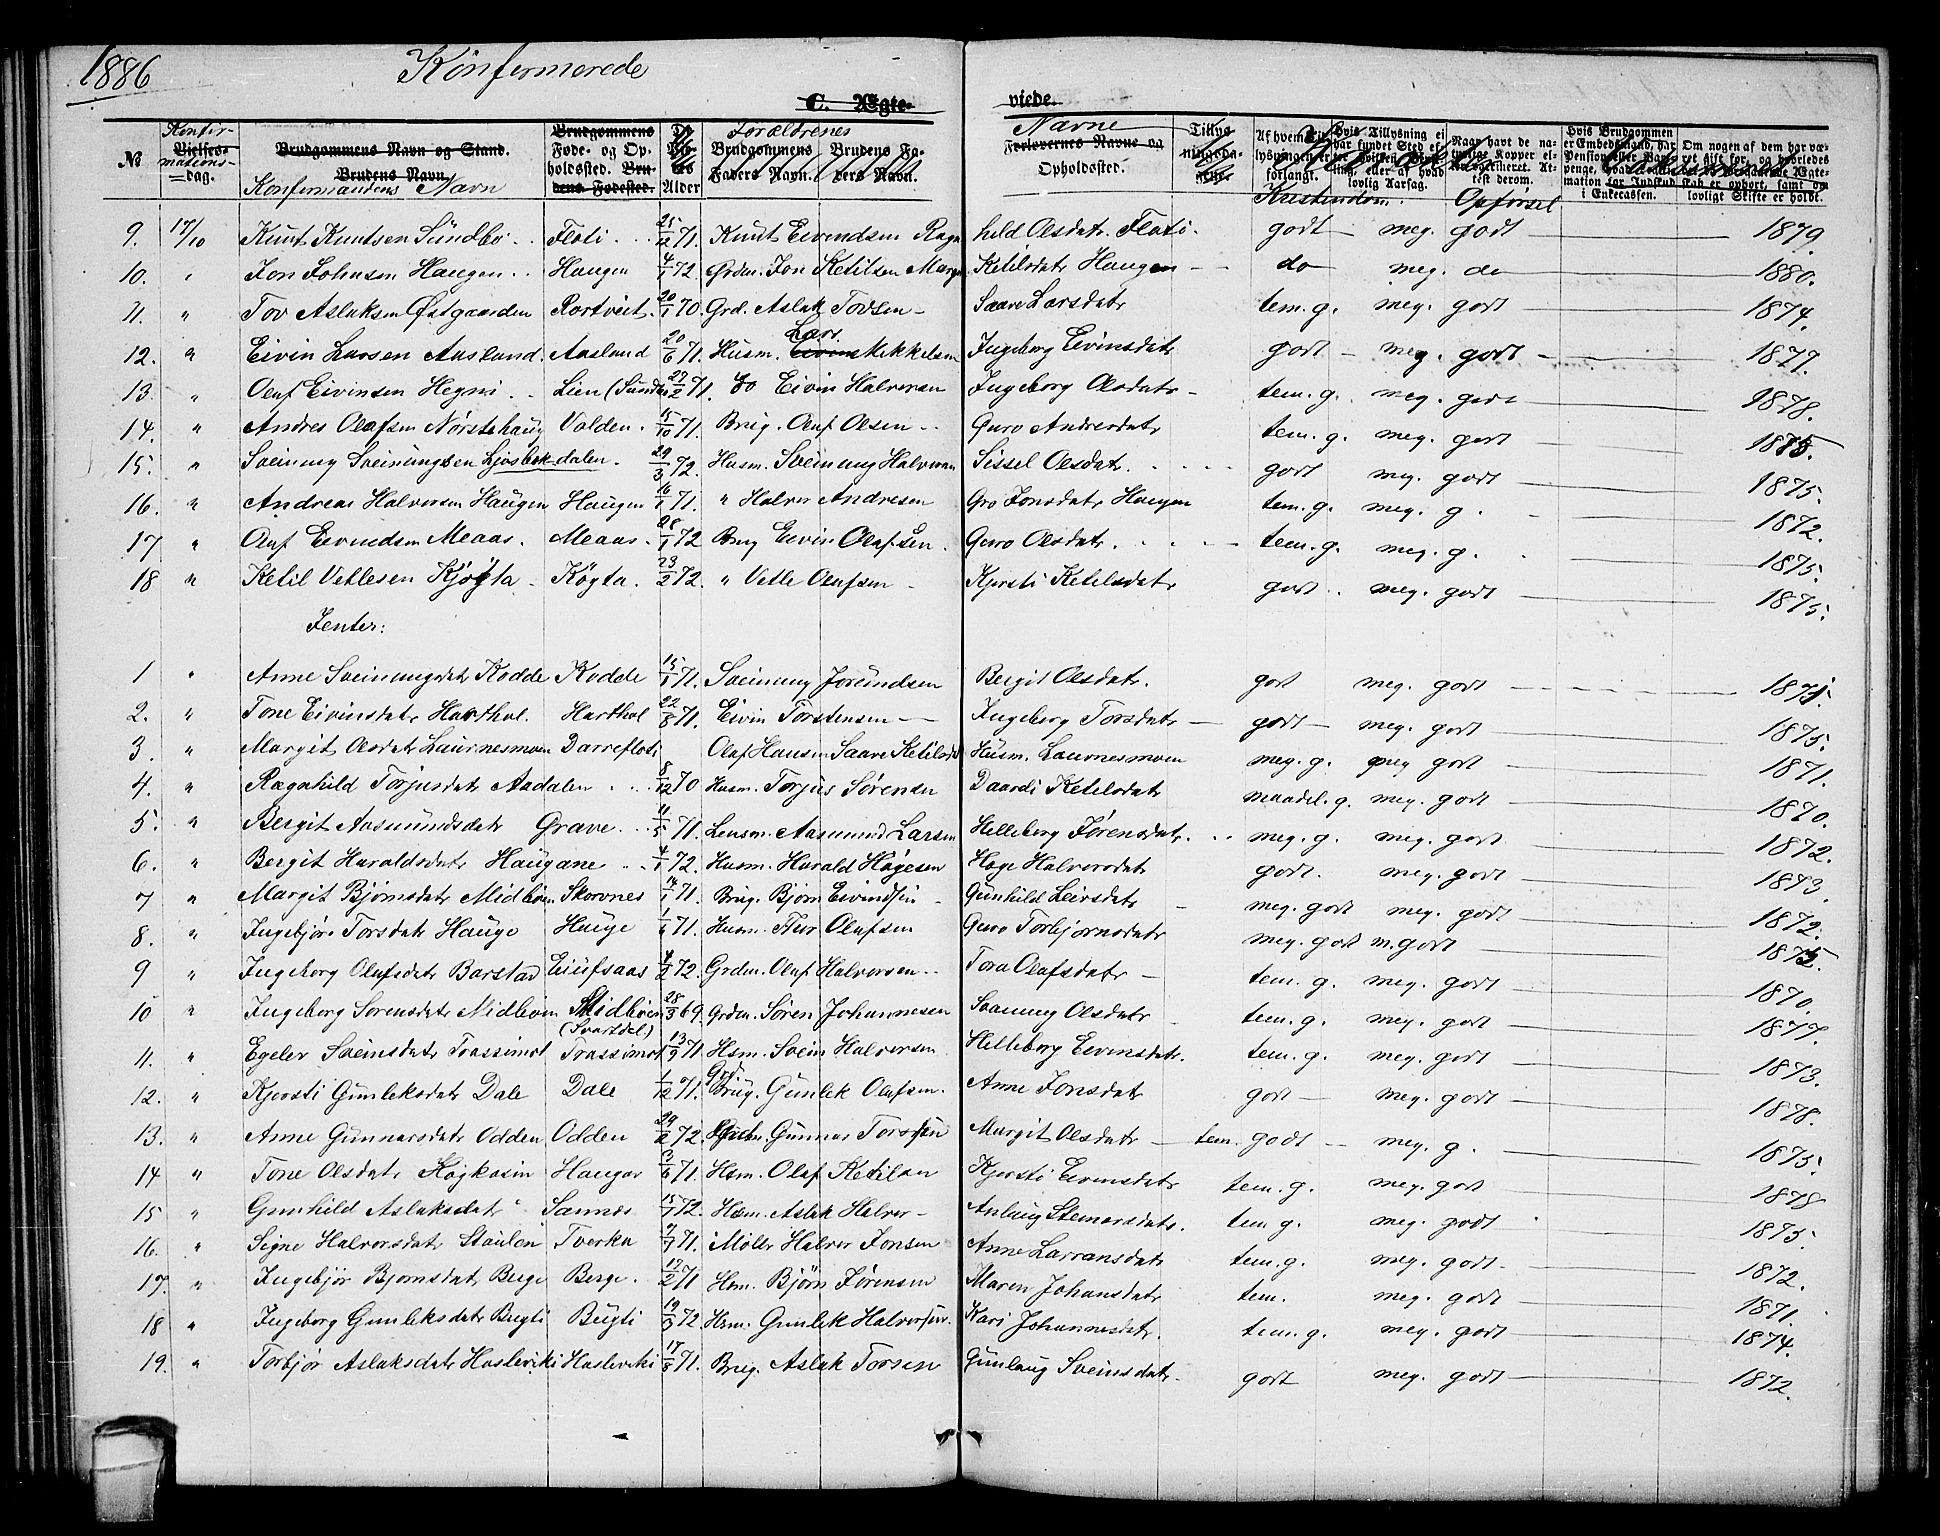 1886 Konfermerede
C. Ægte- viede.
№ Konfir- Vielses- mations- dag. Brudgommens Navn og Stand. Brudens Navn. Konfermandens Navn Brudgommens Føde- og Opholdssted. Brudens Fødested. Alder Forældrenes Brudgommens Faders Navn. Brudens Faders Navn. Navne Forlovernes Navne og Opholdssted. Kristendom. Opførsel
9. 17/10 Knut Knutsen Sundbø Flati 25/12 71. Knut Eivindsen Ragnhild Olsdatr Flati. godt meg. godt 1879
10. " Jon Johnsen Haugen Haugen 4/1 72. Grdm. Jon Ketilsen Margit Ketilsdatr Haugen do meg. do 1880.
11. " Tov Aslaksen Østgaarden Rortveit. 20/1 70. Grd. Aslak Tovsen Saave Larsdatr tem. g. meg. godt 1874.
12. " Eivin Larsen Aasland. Aasland 20/6 71. Husm. Lars Mikkelsen Ingeborg Eivinsdatr godt meg. godt 1877.
13. " Olaf Eivinsen Hegni Lien (Sundbø 27/2 71. do Eivin Halvorsen Ingeborg Olsdatr tem. g. meg. godt 1878.
14. " Andres Olafsen Nørstehaug Valden. 15/10 71. Brug. Oluf Olsen Guro Andresdatr tem. g. meg. godt 1875.
15. " Sveinung Sveinungsen Ljosbekdalen. 29/3 72. Husm. Sveinung Halvorsen Sissel Olsdatr. godt meg. godt 1875.
16. " Andreas Halvorsen Haugen Haugen 16/1 71. " Halvor Andresen Gro Jonsdatr Haugen tem. g. meg. g. 1872.
17 " Oluf Eivindsen Meaas. Meaas. 28/1 72 Brug Eivin Olafsen. Guro Olsdatr. tem. g. meg. g. 1875.
18 " Ketil Vetlesen Kjøgta Køgta. 23/2 72. " Vetle Olafsen Kjersti Ketilsdatr godt meg. godt 1875.
Jenter:
1 " Anne Sveinungsdatr Kodde Kodde 15/1 71. Sveinung Jorundsen Bergit Olsdatr. godt meg. godt 1875.
2. " Tone Eivinsdatr Harthol. Harthol 22/8 71. Eivin Torstensen Ingeborg Torsdatr godt meg. godt 1875.
3. " Margit Olsdatr Laurnesmoen Darreflati Olaf Hansen Saave Ketilsdatr Husm. Laurnesmoen meg. g. meg godt 1871.
4. " Ragnhild Torjusdatr Aadalen 8/12 70 Husm. Torjus Sørensen Daardi Ketilsdatr maadel. g. meg. godt 1870.
5. " Bergit Aasmundsdatr Grave 11/5 71. Lensm. Aasmund Larsen Helleborg Jørensdatr. meg. g. meg. godt 1872.
6. " Bergit Haraldsdatr Haugane 4/1 72. Husm. Harald Høgesen Hæge Halvorsdatr godt. meg. godt 1873.
7 " Margit Bjørnsdatr Midbøen Skornes 14/1 71. Brug. Bjørn Eivindsen Gunhild Leivsdatr meg. godt meg. godt 1872.
8. " Ingebjør Torsdatr Hauge Hauge 1/6 71. Husm. Thor Olafsen Guro Torbjørnsdatr meg. godt m. godt 1875.
9 " Ingeborg Olafsdatr Barstad Eiufsaas 4/2 72. Grdm. Oluf Halvorsen Tora Olafsdatr tem. g. meg. godt 1870.
10 " Ingeborg Sørensdatr Midbøen Midbøen (Svartdal) 28/3 69. Grdm. Søren Johannesen Saanug Olsdatr tem. g. meg. godt 1877.
11. " Egeler Sveinsdatr Trassimot Trassimot 13/9 71. Hsm. Svein Halvorsen Helleborg Eivinsdatr. tem. g. meg. godt 1873.
12. " Kjersti Gunleksdatr Dale Dale 1/12 71. Grd. Brug. Gunlek Olafsen. Anne Jonsdatr godt meg. godt 1878.
13. " Anne Gunnarsdatr Odden Odden 29/2 72. Grdm. Gunnar Torssen Margit Olsdatr tem. godt meg. g. 1875.
14 " Tone Olsdatr Høgkasin Haugar 3/6 71. Hsm. Olaf Ketilsen Kjersti Eivinsdatr tem. g. meg. godt 1878
15 " Gunhild Aslaksdatr Sannes 15/1 72. Hsm. Aslak Halvor Anlaug Stenarsdatr. tem g. meg. godt 1875.
16. " Signe Halvorsdatr Staulen Tverka 9/7 71. Møller Halvor Jonsen Anne Larransdatr tem. g. meg. godt 1872.
17. " Ingebjør Bjørnsdatr Berge Berge. 12/2 71 Hsm. Bjørn Jørensen Maren Johansdatr tem. meg. godt 1871.
18 " Ingeborg Gunleksdatr Bugti Bugti 19/3 72 Hsm. Gunlek Halvorsen. Kari Johannesdatr. tem. g. meg. godt 1874.
19. " Torbjør Aslaksdatr Haslevikि Hasleviki 17/8 71. Brug. Aslak Torsen Gunlaug Sveinsdatr. godt meg. godt 1872.